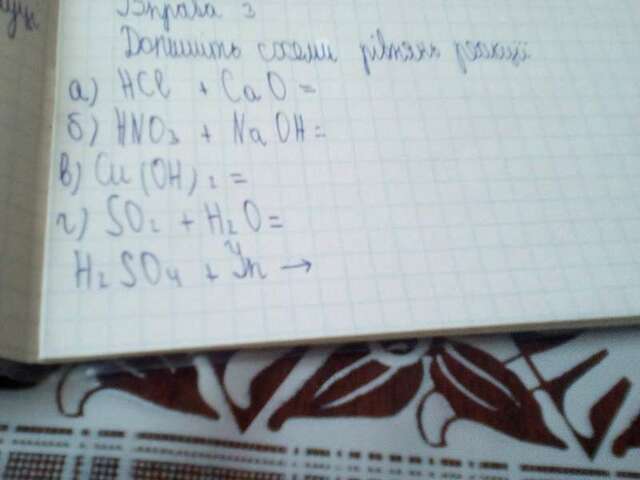 Вправа 3
Допишіть схеми рівнянь реакцій
а) HCl + CaO =
б) HNO₃ + NaOH =
в) Cu(OH)₂ =
г) SO₂ + H₂O =
H₂SO₄ + Zn →